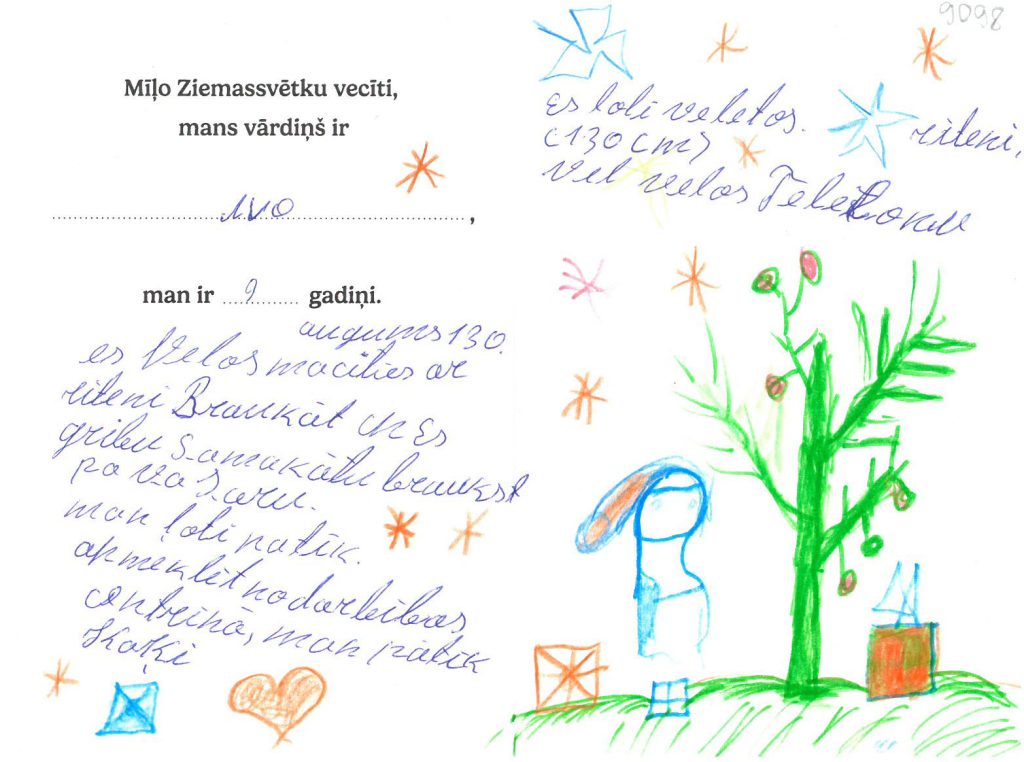 9098
Mīļo Ziemassvētku vecīti,
mans vārdiņš ir
IVO,
man ir 9 gadiņi.
augums 130.
es Velos macīties ar
riteni Braukāt un Es
gribu Samakātu braukst
pa vasaru.
man ļoti patīk.
apmeklēt nodarbības
centrinā, man patīk
Kaķi
Es loti veletos. riteni,
(130 cm)
vel velos Telefonu